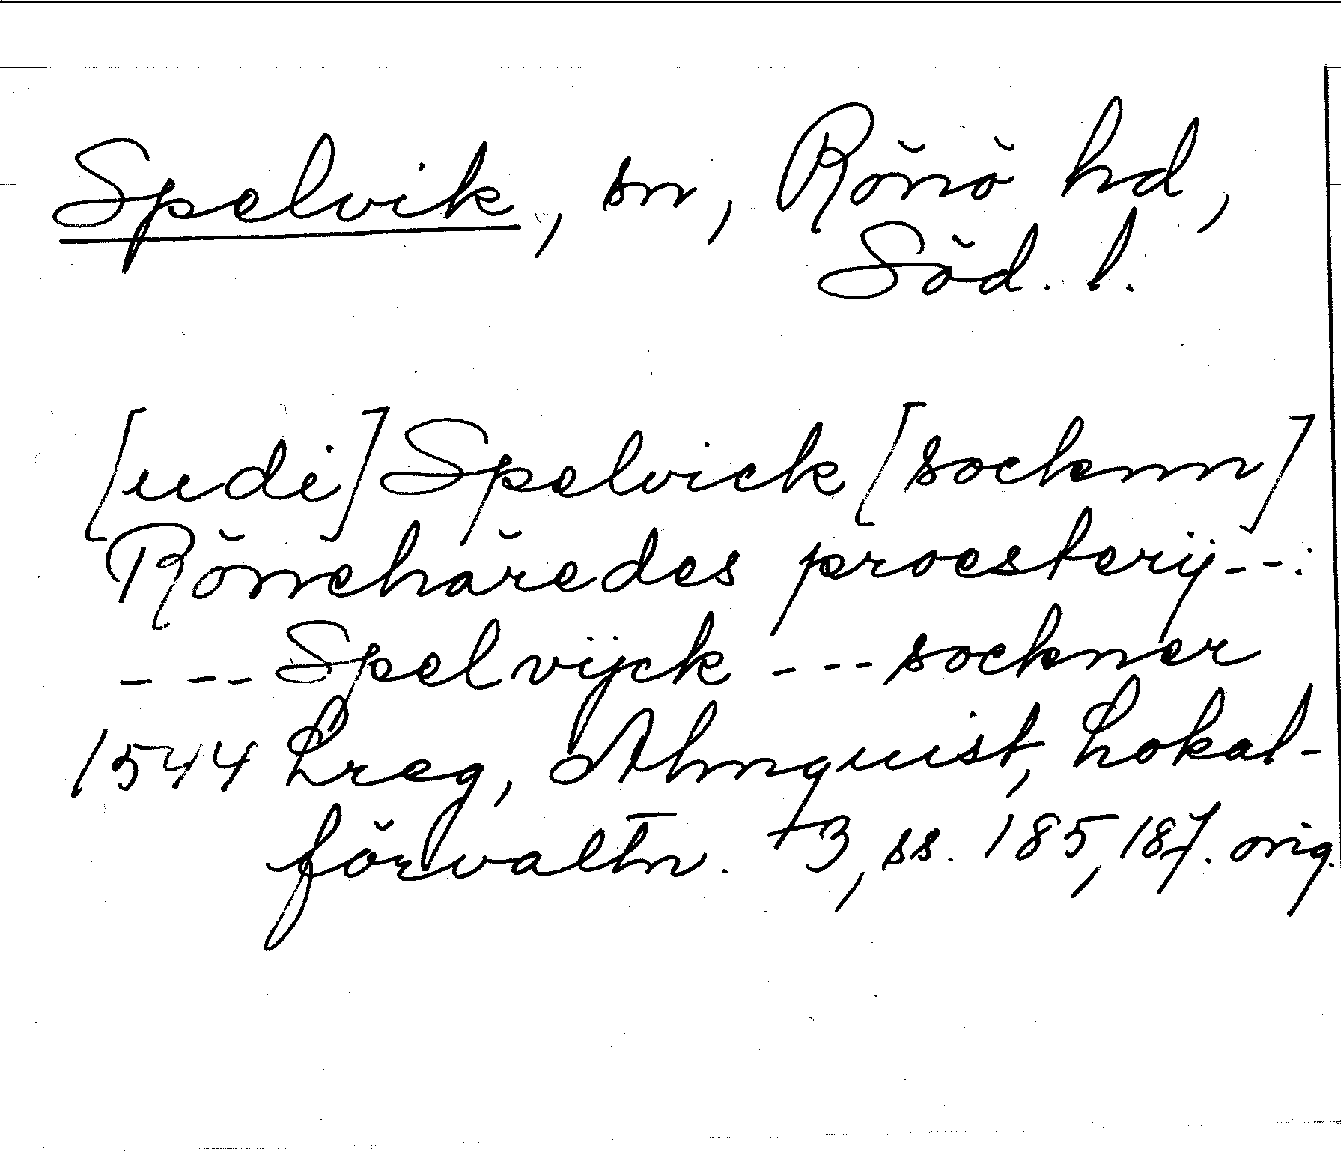 Spelvik, sn, Rönö hd,
Söd. l.
[udi] Spelvick [socknn]
Rönehäredes proesterij --:
- -- Spelvijck --- sockner
1544 Lreg, Almquist, Lokal-
förvaltn. +3, ss. 185, 187. orig.